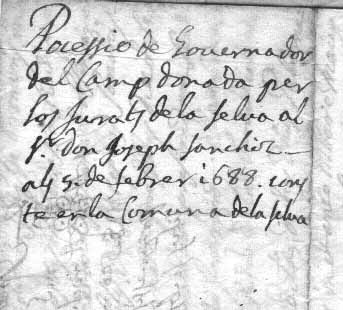 Possessio de Governador
del Camp donada per
los Jurats de la selva al
Sr. don Joseph sanchis
als 5. de febrer 1688. cons
te en la Comuna de la selva